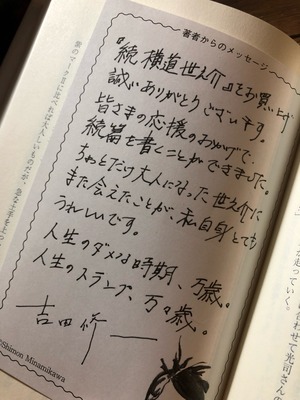 著者からのメッセージ
『続 横道世之介』をお買い上げ
誠にありがとうございます。
皆さまの応援のおかげで、
続篇を書くことができました。
ちょっとだけ大人になった世之介に
また会えたことが、私自身とても
うれしいです。
人生のダメな時期、万歳。
人生のスランプ、万々歳。
吉田修一
©Shimon Minamikawa